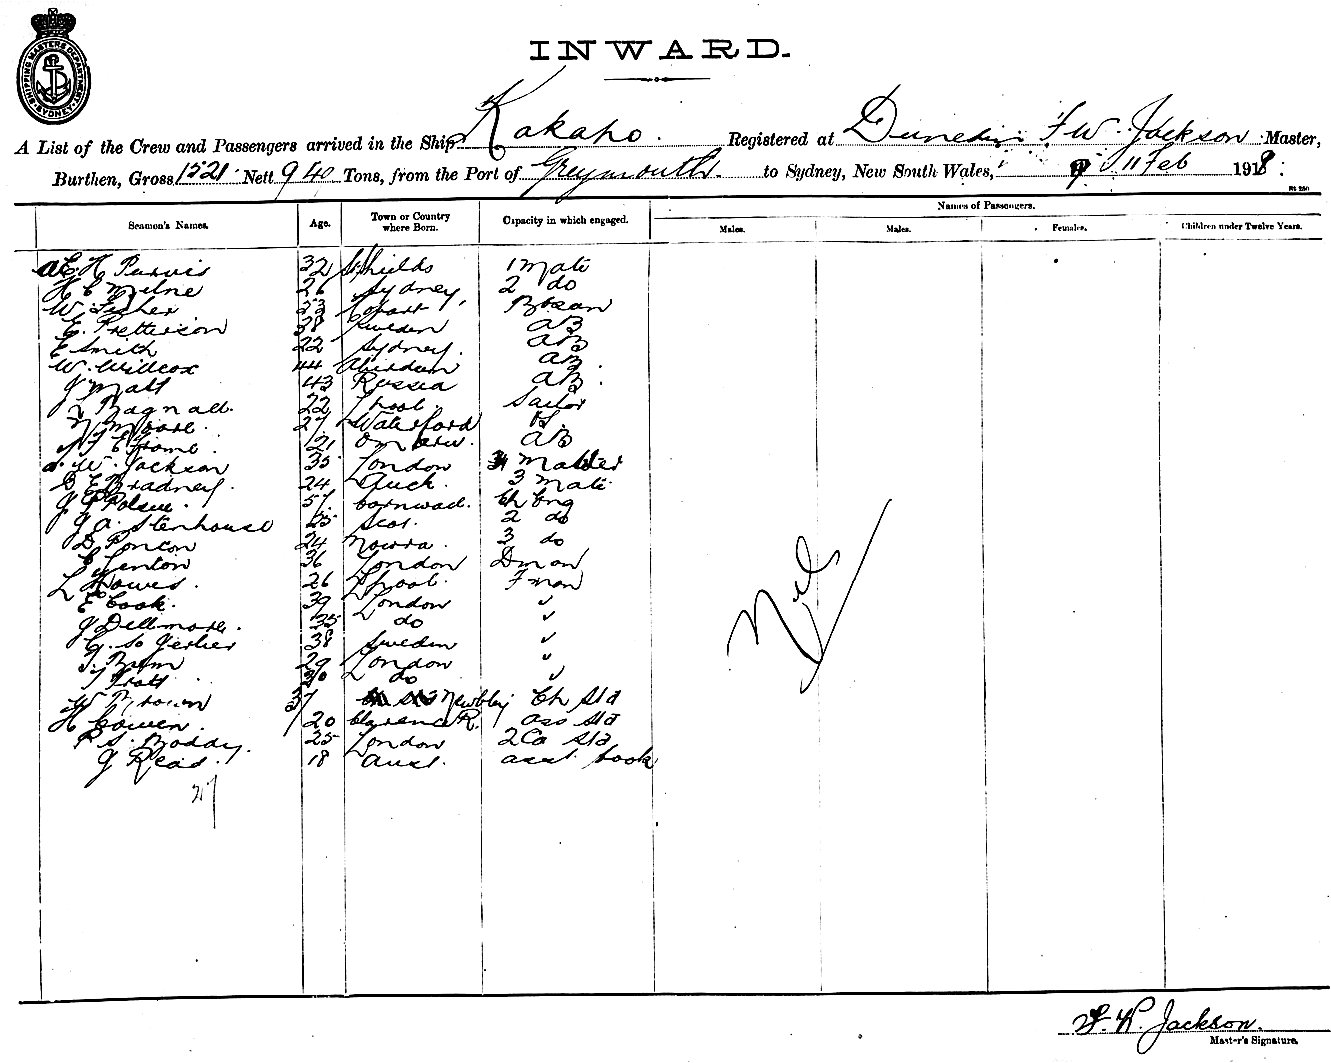 SHIPPING MASTERS DEPARTMENT SYDNEY
INWARD.
A List of the Crew and Passengers arrived in the Ship Kakapo. Registered at Dunedin F W. Jackson Master,
Burthen, Gross 1521 Nett 940 Tons, from the Port of Greymouth. to Sydney, New South Wales, 11 Feb 1918
Names of Passengers.
Seamen's Names. Age. Town or Country where Born. Capacity in which engaged. Males. Males. Females. Children under Twelve Years.
E H Purvis 32 Shields 1 Mate
H C Milne 26 Sydney, 2 do
W. Fisher 53 Hobart, Bosan
E. Petterson 38 Sweden AB
E Smith 22 Sydney. AB
W. Wilcox 44 Aberdeen AB
J Matt 43 Russia AB
Bagnall. 22 L'pool. Sailor
Moore. 27 Waterford
21 Omaru. AB
W. Jackson 35 London Master
Bradney. 24 Auck. 3 Mate
J Polsue. 57 Cornwall. Ch Eng
J A. Stenhouse 25 Scot. 2 do
D Ponton 24 Nowra. 3 do
Fenton 36 London Dman
L Howes. 26 L'pool. Fman
E Cook. 39 London "
J Dellmore. 35 do "
38 Sweden "
29 London "
Pratt 30 do "
W Brown 37 Ch Std
H Cowen. 20 Clarence R. Ass Std
P S. Boddy. 25 London 2 Ca Std
J Read. 18 Aust. asst Cook
Nil
F. W. Jackson.
Master's Signature.